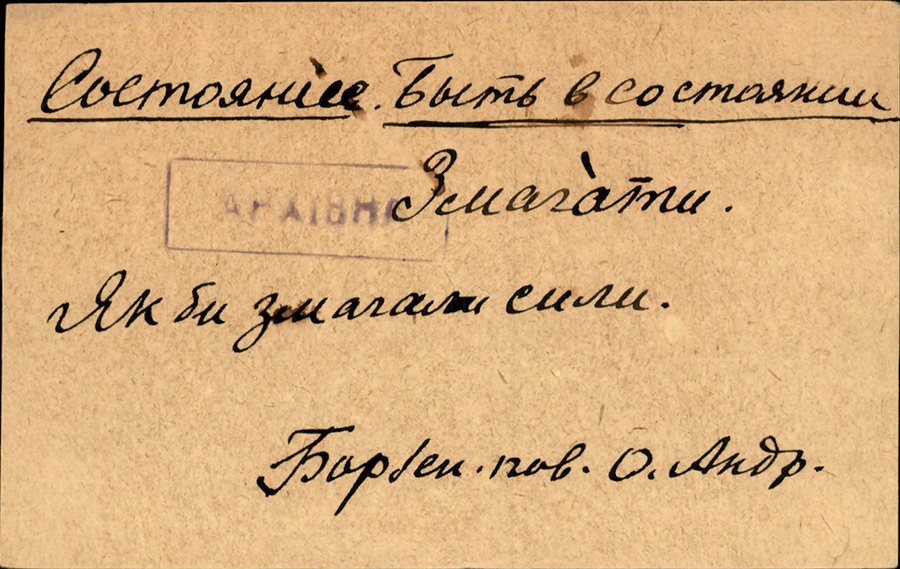 Состояние. Быть в состоянии
АРХІВНА
Змага̀ти.
Як би змагали сили.
Борзен. пов. О. Андр.